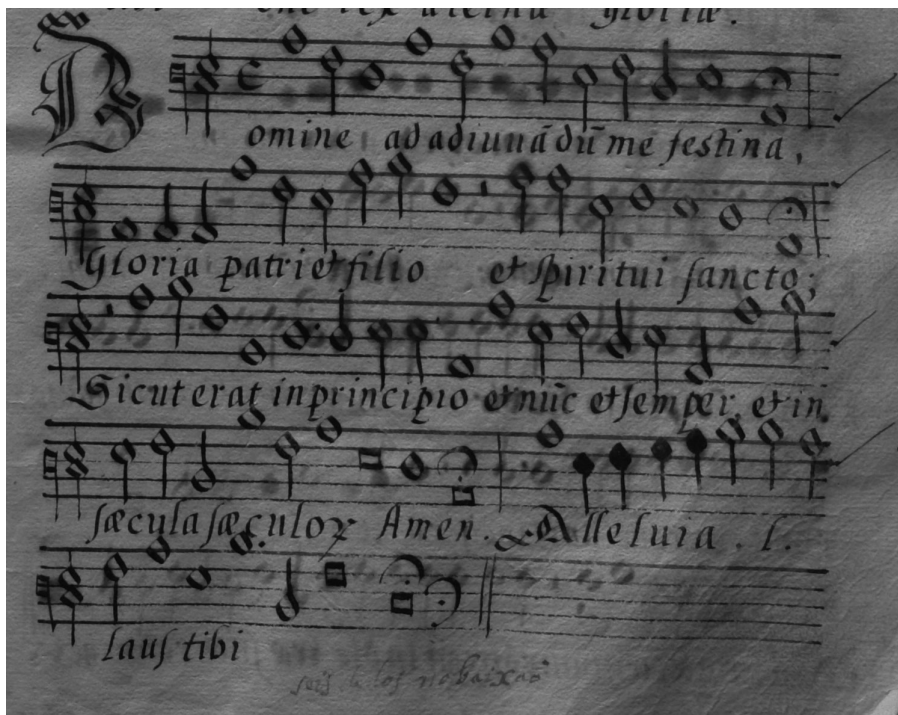 rex æterna gloriæ.
Domine ad adiuuãdũ me festina,
Gloria patri et filio et spiritui sancto;
Sicut erat in principio et nũc et semper, et in
sæcula sæculoꝝ Amen. Alleluia. l.
laus tibi